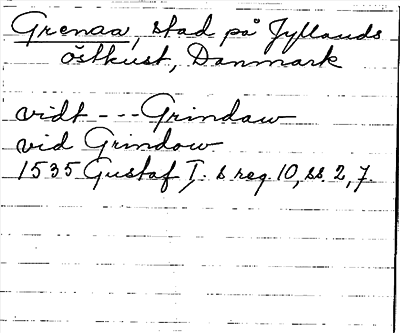 Grenaa, stad på Jyllands
östkust, Danmark
vidt --- Grindaw
vid Grindow
1535 Gustaf I:s reg. 10, ss. 2, 7.